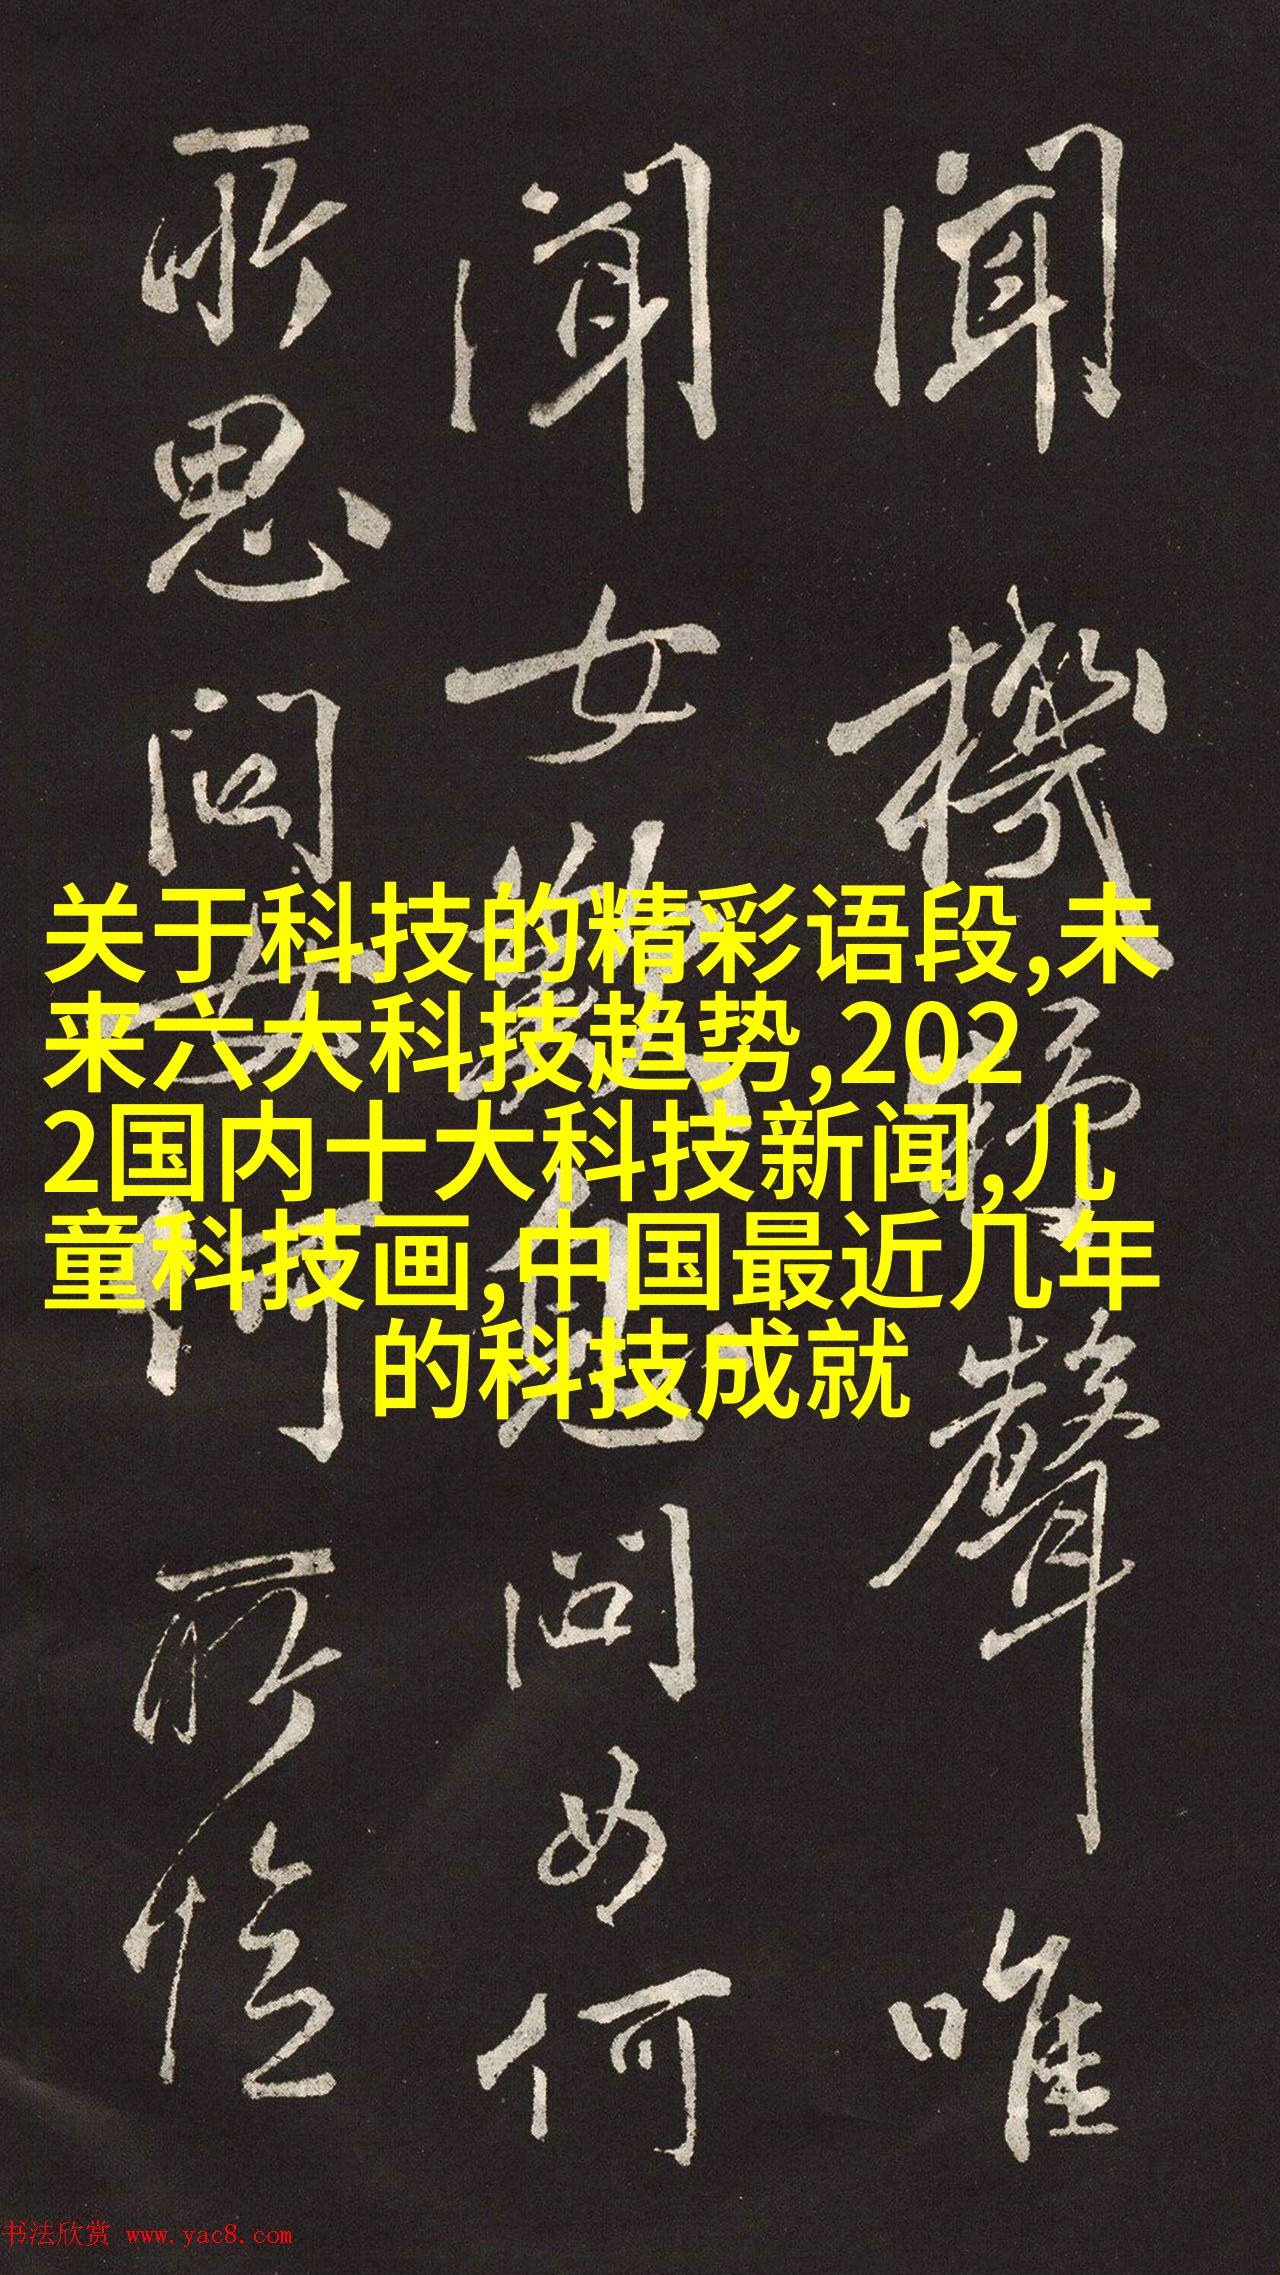 聞機杼聲唯
聞女歎息問女何
所思問女何所憶
关于科技的精彩语段,未
来六大科技趋势,202
2国内十大科技新闻,儿
童科技画,中国最近几年
的科技成就
书法欣赏 www.yac8.com